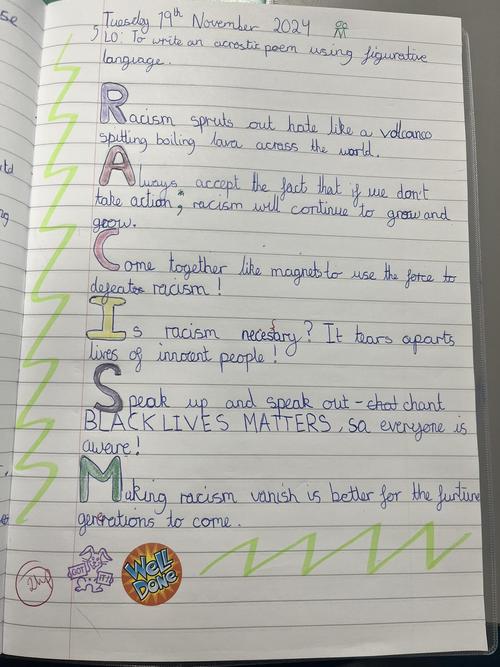 se
Tuesday 19th November 2024
LO: To write an acrostic poem using figurative
language.
Racism spruts out hate like a volcanoo
spitting boiling lava across the world.
Always accept the fact that if we don't
take action, racism will continue to grow and
grow.
Come together like magnets to use the force to
defeate racism!
Is racism necessary? It tears aparts
lives of innocent people!
Speak up and speak out - chat chant
BLACK LIVES MATTERS, so everyone is
aware!
Making racism vanish is better for the furture
generations to come.
GOT IT!
WELL DONE
2hp